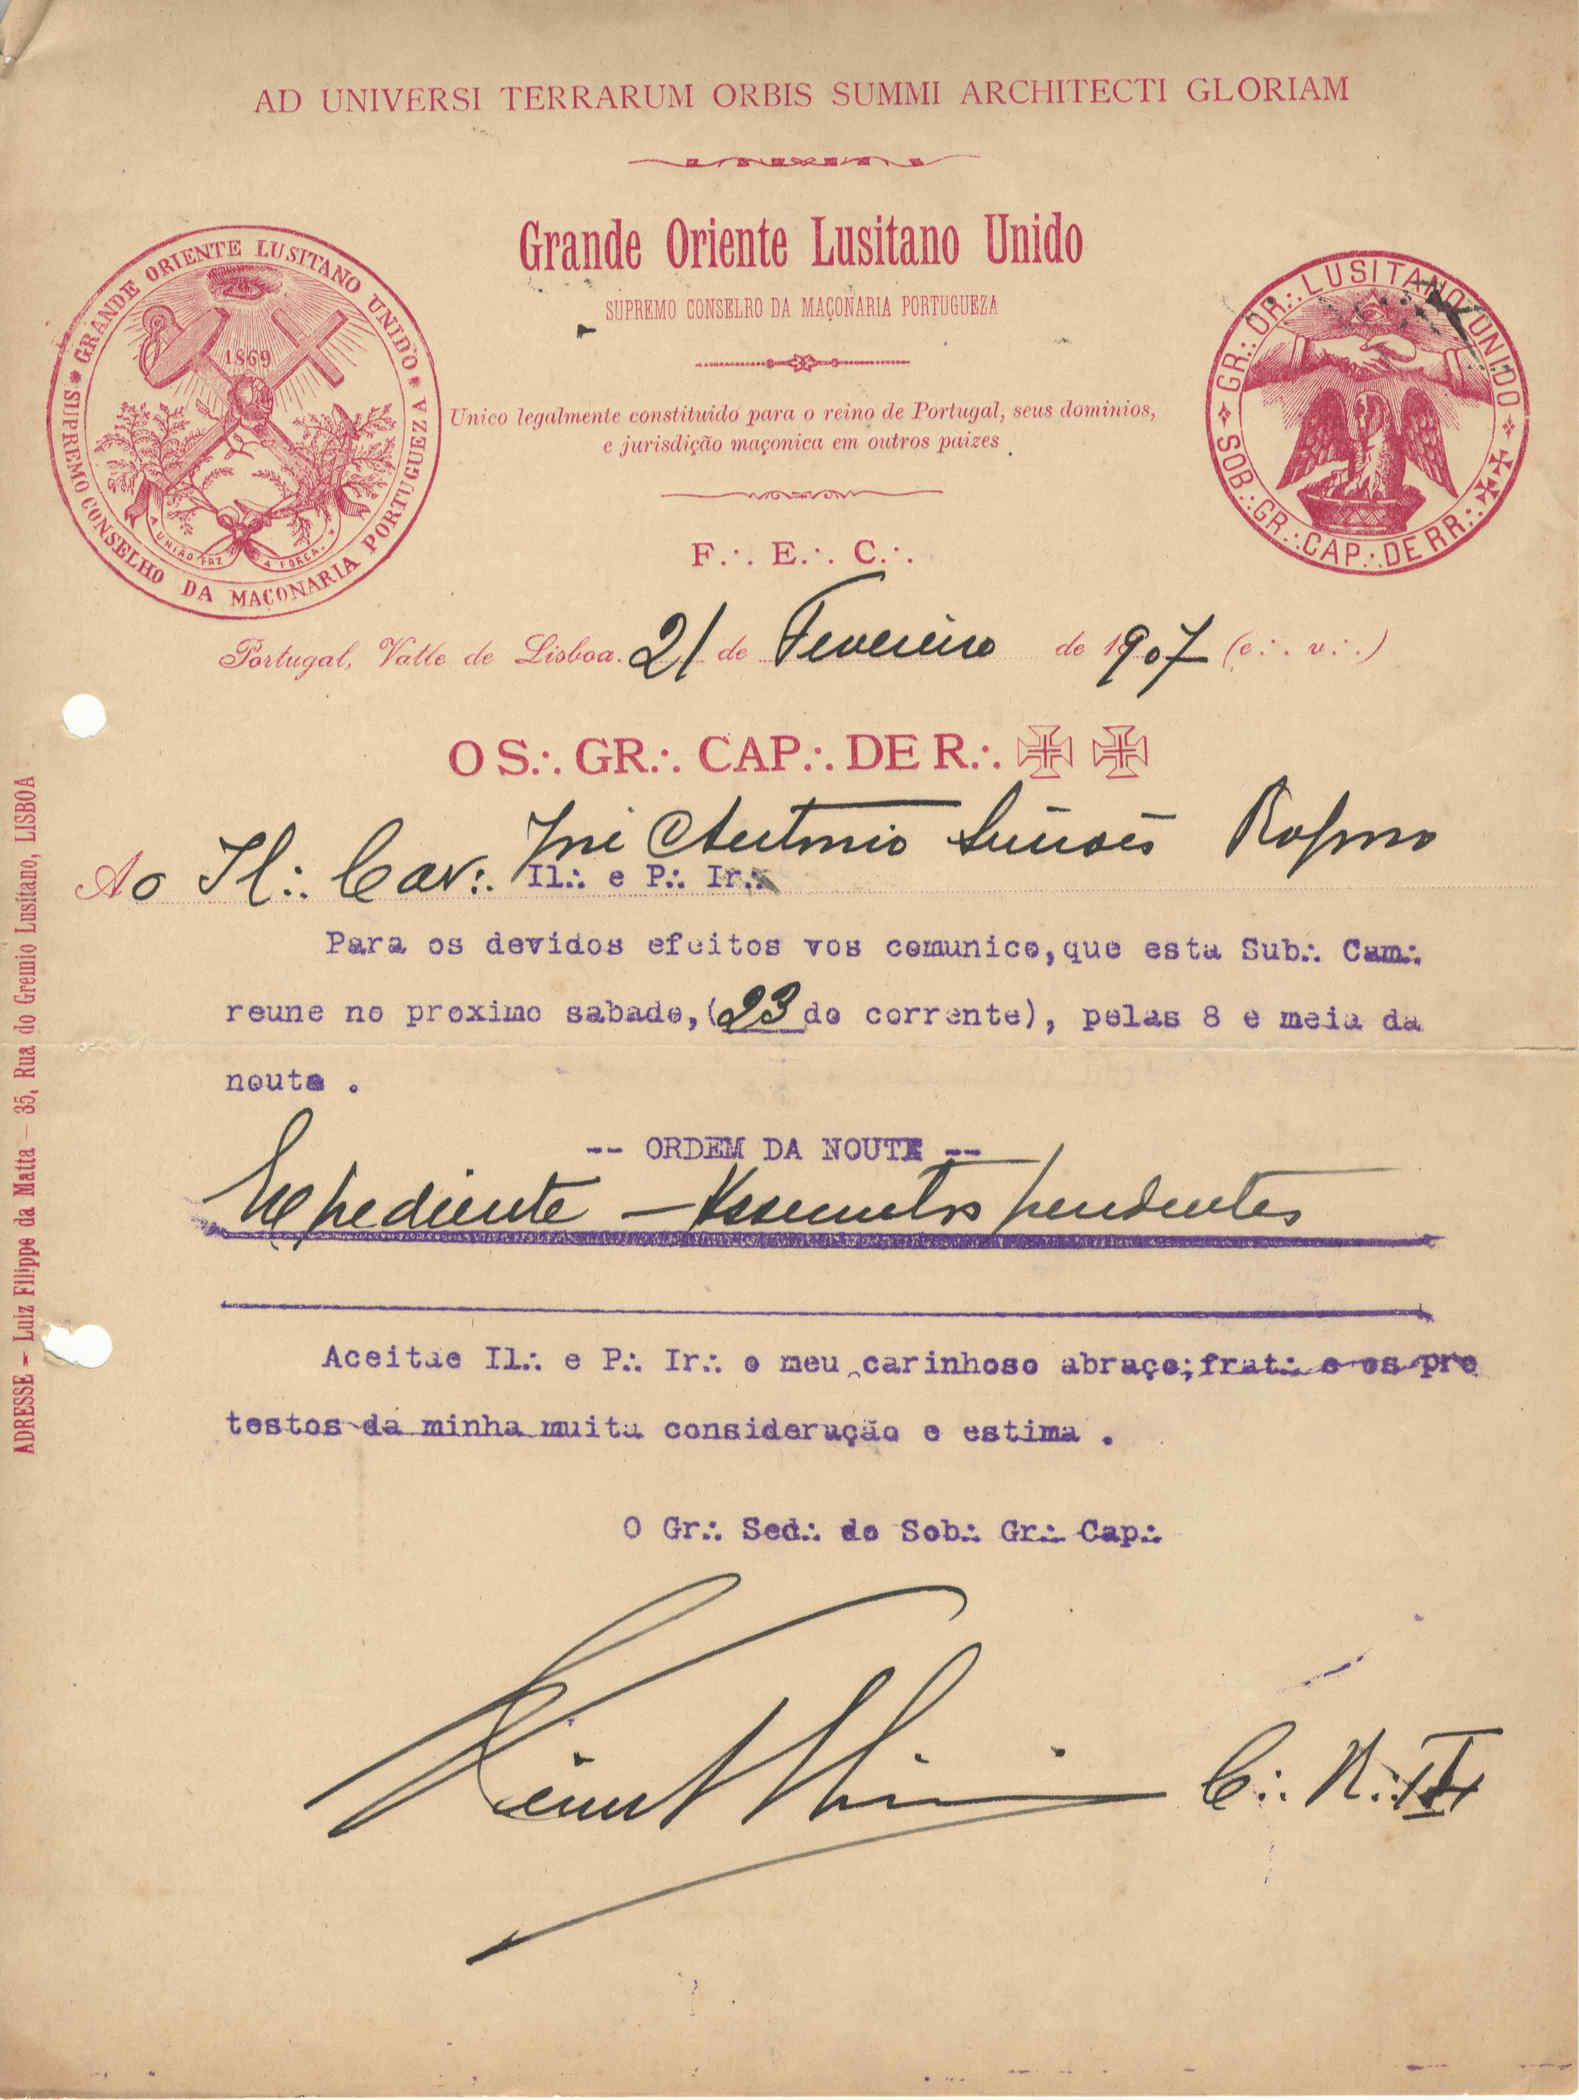 AD UNIVERSI TERRARUM ORBIS SUMMI ARCHITECTI GLORIAM
Grande Oriente Lusitano Unido
SUPREMO CONSELRO DA MAÇONARIA PORTUGUEZA
GRANDE ORIENTE LUSITANO UNIDO
SUPREMO CONSELHO DA MAÇONARIA PORTUGUEZA
1869
A UNIÃO FAZ A FORÇA
GR∴ OR∴ LUSITANO UNIDO
SOB∴ GR∴ CAP∴ DE RR∴
Unico legalmente constituido para o reino de Portugal, seus dominios,
e jurisdição maçonica em outros paizes
F∴ E∴ C∴
Portugal, Valle de Lisboa 21 de Fevereiro de 1907 (e∴ v∴)
O S∴ GR∴ CAP∴ DE R∴
Ao Il∴ Cav∴ José Antonio Simões
Il∴ e P∴ Ir∴
Para os devidos efeitos vos comunico, que esta Sub∴ Cam∴
reune no proximo sabado, (23 do corrente), pelas 8 e meia da
noute .
-- ORDEM DA NOUTE --
Expediente — Assumptos pendentes
Aceitae Il∴ e P∴ Ir∴ o meu carinhoso abraço; frat∴ e os pro
testos da minha muita consideração e estima .
O Gr∴ Sed∴ do Sob∴ Gr∴ Cap∴
C∴ R∴
ADRESSE — Luiz Filippe da Matta — 35, Rua do Gremio Lusitano, LISBOA